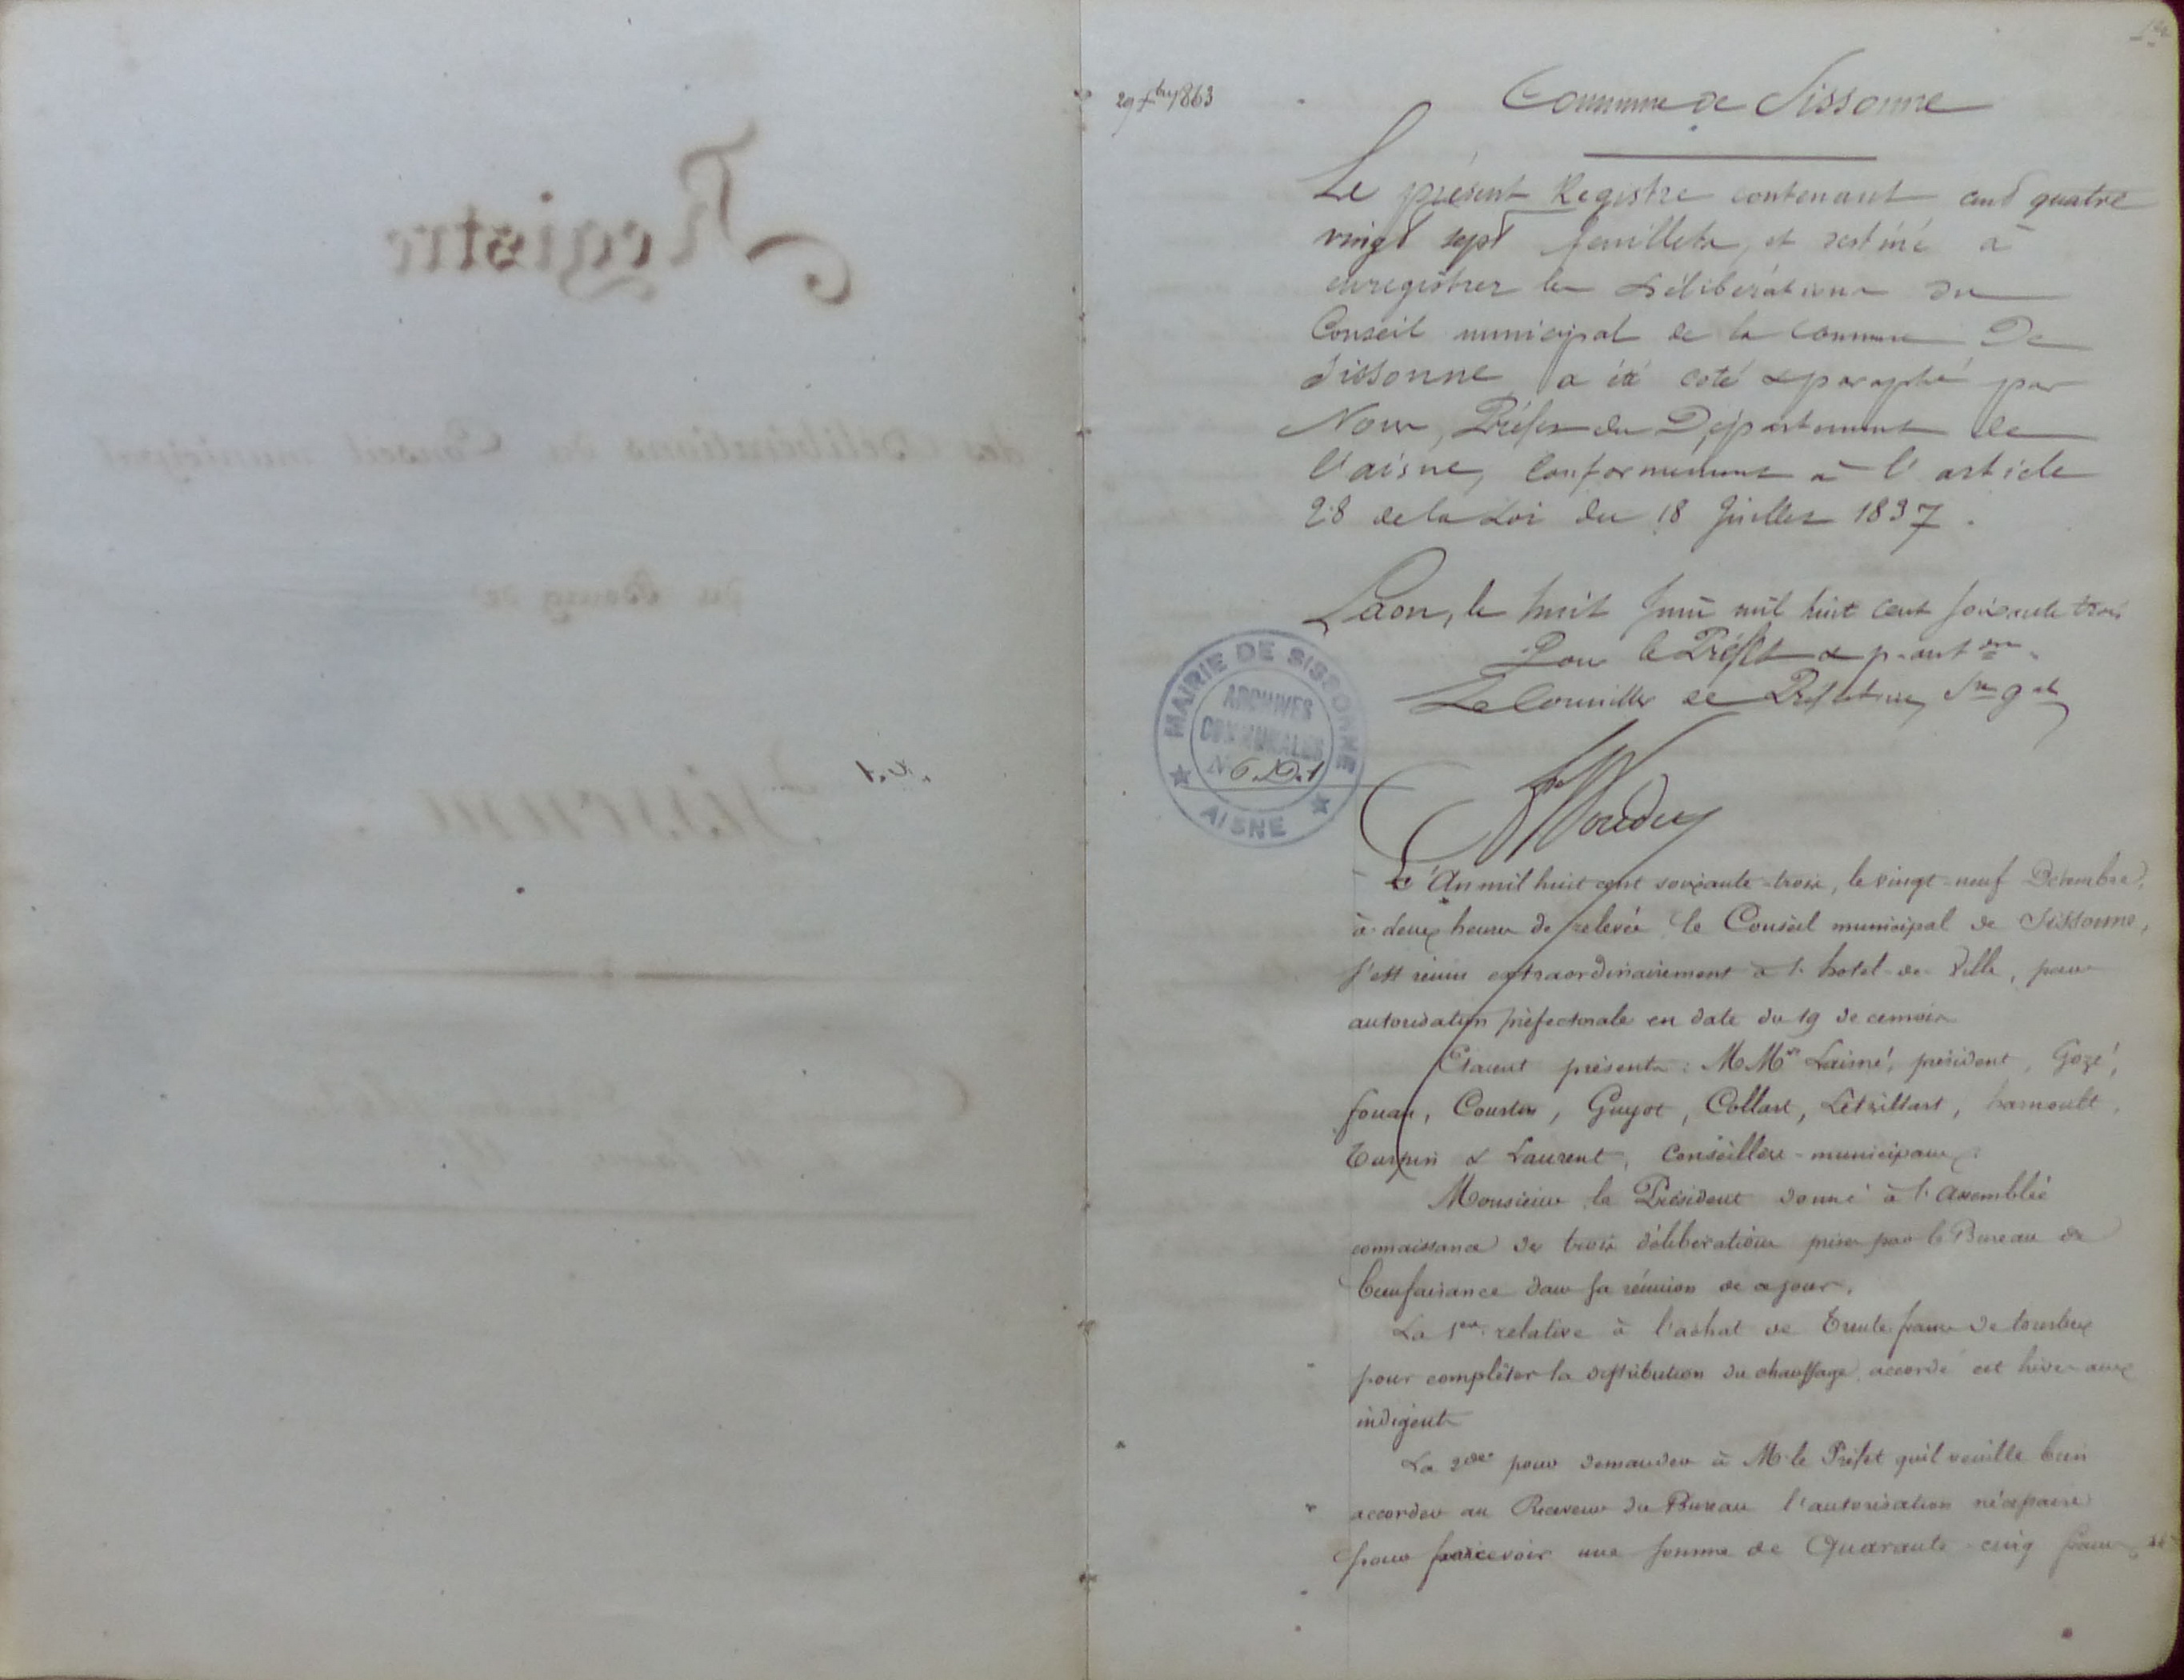 Registre
des Délibérations du Conseil municipal
du Bourg de
Sissonne
1er
29 Xbre 1863
Commune de Sissonne
Le présent Registre contenant cent quatre
vingt sept feuillets, et destiné à
enregistrer les Délibérations du
Conseil municipal de la commune De
Sissonne a été coté & paraphé par
Nous, Préfet du Département de
l'aisne, Conformément à l'article
28 de la Loi du 18 Juillet 1837.
Laon, le huit Juin mil huit cent soixante trois
Pour le Préfet & p. aut on
Le Conseiller de Préfecture, Sre gal
MAIRIE DE SISSONNE
ARCHIVES
COMMUNALES
N° 6 D.1
AISNE
L'An mil huit cent soixante-trois, le vingt-neuf Décembre,
à deux heures de relevée le Conseil municipal de Sissonne,
s'est réuni extraordinairement à l'hotel-de-Ville, pour
autorisation préfectorale en date du 19 de ce mois
Etaient présents : M Mrs Laisné, président, Gozé,
fouan, Cousin, Guyot, Collart, Létrillart, harnoult,
Turpin & Laurent, Conseillers-municipaux.
Monsieur le Président donne à l'Assemblée
connaissance des trois délibérations prises par le Bureau de
bienfaisance dans sa réunion de ce jour.
La 1ere relative à l'achat de Trente francs de tourbes
pour compléter la distribution du chauffage accordé cet hiver aux
indigents
La 2de pour demander à M. le Préfet qu'il veuille bien
accorder au Receveur du Bureau l'autorisation nécessaire
pour percevoir une somme de Quarante-cinq francs